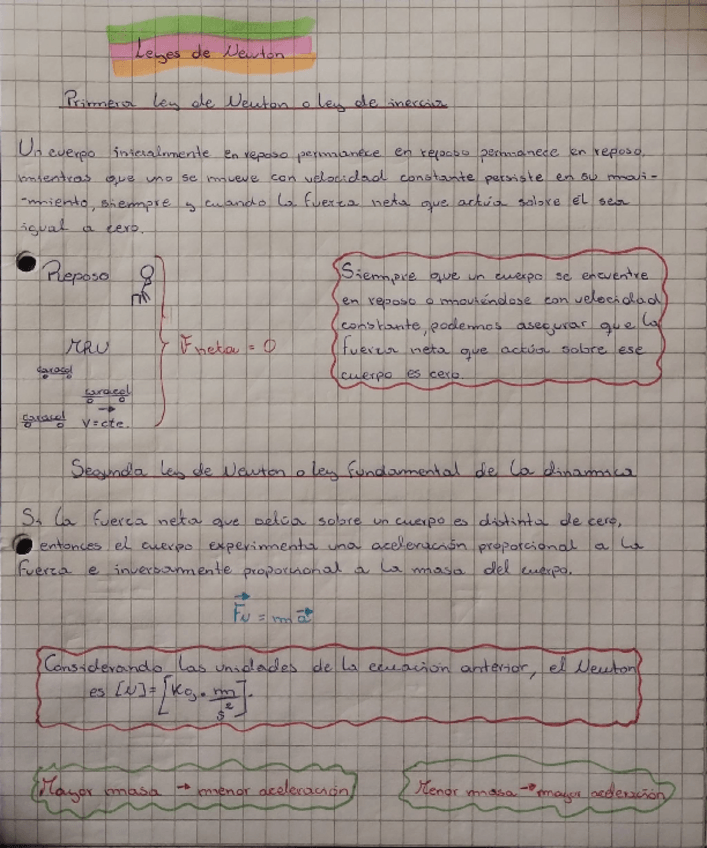 Leyes de Newton
Primera ley de Newton o ley de inercia
Un cuerpo inicialmente en reposo permanece en reposo permanece en reposo,
mientras que uno se mueve con velocidad constante persiste en su movi-
-mmiento, siempre y cuando la fuerza neta que actúa sobre él sea
igual a cero.
Reposo
MRU
caracol
caracol
caracol v = cte.
F neta = 0
Siempre que un cuerpo se encuentre
en reposo o moviéndose con velocidad
constante, podemos asegurar que la
fuerza neta que actúa sobre ese
cuerpo es cero.
Segunda ley de Newton o ley fundamental de la dinamica
Si la fuerza neta que actúa sobre un cuerpo es distinta de cero,
entonces el cuerpo experimenta una aceleración proporcional a la
fuerza e inversamente proporcional a la masa del cuerpo.
F⃗N = m a⃗
Considerando las unidades de la ecuación anterior, el Newton
es [N] = [Kg · m/s²].
Mayor masa → menor aceleración
Menor masa → mayor aceleración